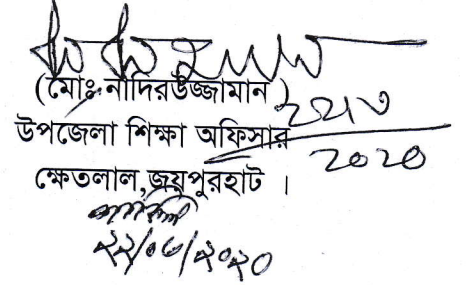 (মোঃ নাদিরউজ্জামান)
উপজেলা শিক্ষা অফিসার
ক্ষেতলাল,জয়পুরহাট ।
2020
২২/০৬/২০২০